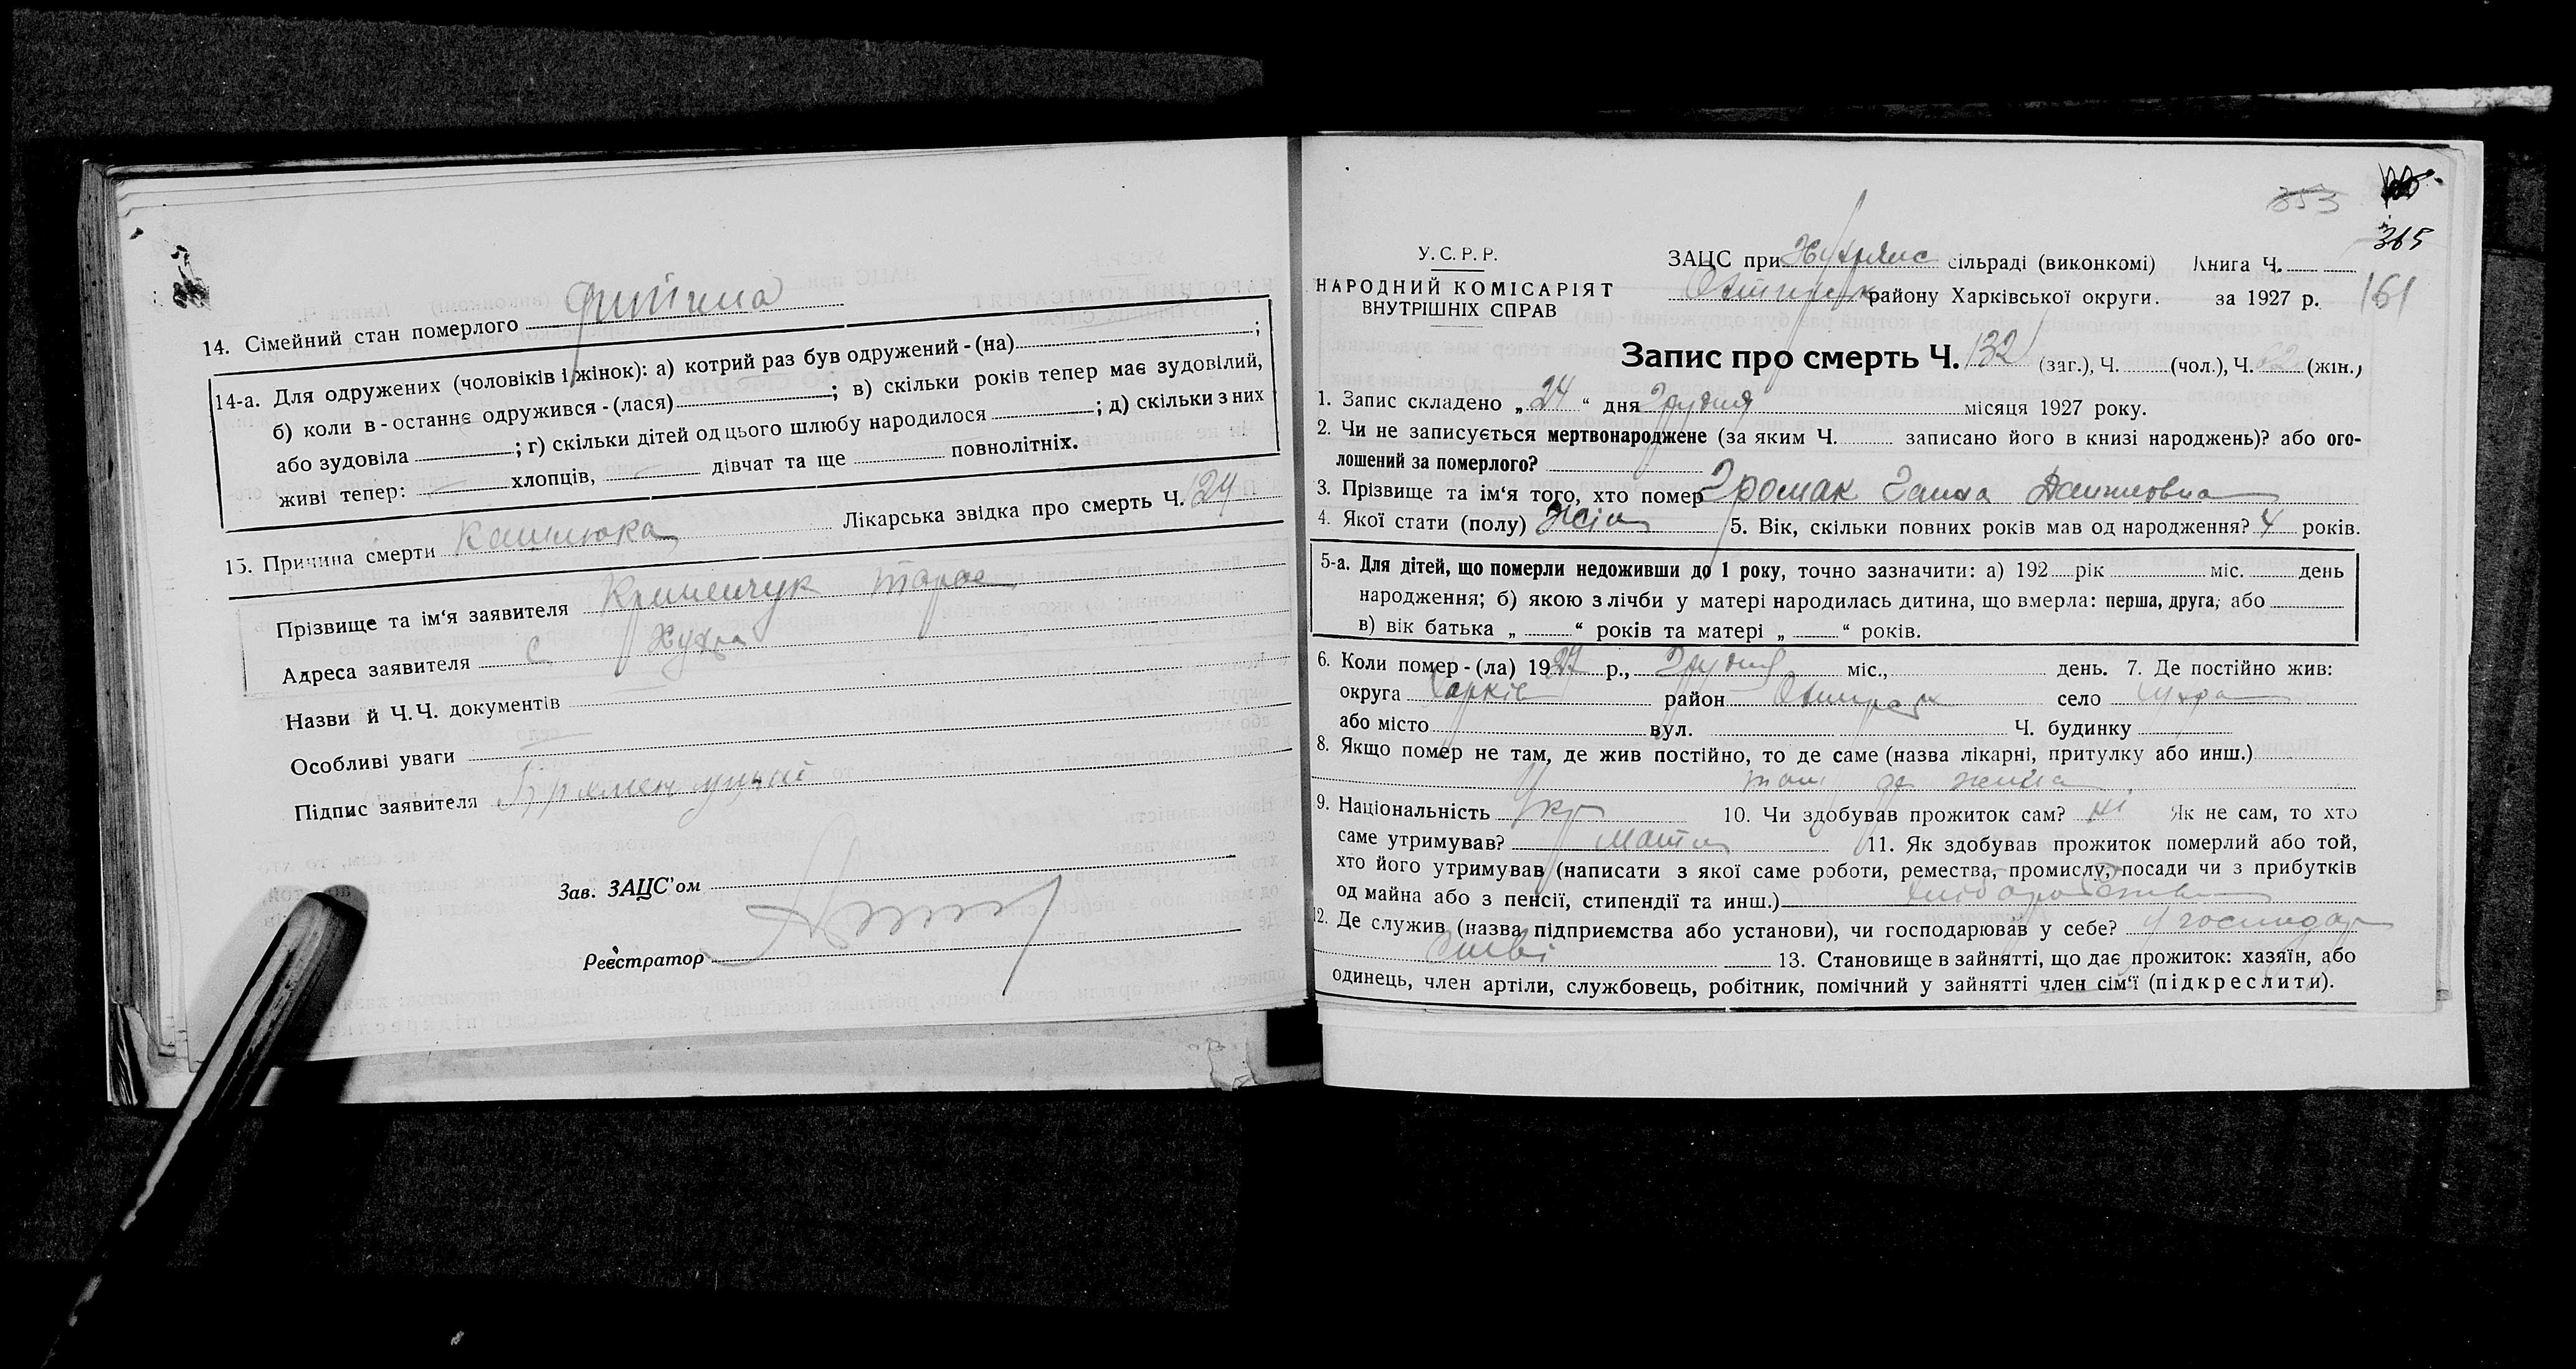 14. Сімейний стан померлого дитина
14-а. Для одружених (чоловіків і жінок): а) котрий раз був одружений - (на) ;
б) коли в - останнє одружився - (лася) ; в) скільки років тепер має зудовілий,
або зудовіла ; г) скільки дітей од цього шлюбу народилося ; д) скільки з них
живі тепер: хлопців, дівчат та ще повнолітніх.
15. Причина смерти Кашлюка Лікарська звідка про смерть Ч. 124
Прізвище та ім'я заявителя Кременчук Тарас
Адреса заявителя с. Хухра
Назви й Ч.Ч. документів
Особливі уваги
Підпис заявителя
Зав. ЗАЦС'ом
Реєстратор
353
365
161
У. С. Р. Р.
НАРОДНИЙ КОМІСАРІЯТ
ВНУТРІШНІХ СПРАВ
ЗАЦС при Хухрянс сільраді (виконкомі) Книга Ч.
Охтирськ району Харківської округи. за 1927 р.
Запис про смерть Ч. 132 (заг.), Ч. (чол.), Ч. 62 (жін.)
1. Запис складено „ 24 “ дня Грудня місяця 1927 року.
2. Чи не записується мертвонароджене (за яким Ч. записано його в книзі народжень)? або ого-
лошений за померлого?
3. Прізвище та ім'я того, хто помер Громак Ганна
4. Якої стати (полу) Жін 5. Вік, скільки повних років мав од народження? 4 років.
5-а. Для дітей, що померли недоживши до 1 року, точно зазначити: а) 192 рік міс. день
народження; б) якою з лічби у матері народилась дитина, що вмерла: перша, друга, або
в) вік батька „ “ років та матері „ “ років.
6. Коли помер - (ла) 1927 р., Грудня міс., день. 7. Де постійно жив:
округа Харків район Охтирськ село Хухра
або місто вул. Ч. будинку
8. Якщо помер не там, де жив постійно, то де саме (назва лікарні, притулку або инш.)
там де жила
9. Національність Укр 10. Чи здобував прожиток сам? ні Як не сам, то хто
саме утримував? мати 11. Як здобував прожиток померлий або той,
хто його утримував (написати з якої саме роботи, ремества, промислу, посади чи з прибутків
од майна або з пенсії, стипендії та инш.) хліборобства
12. Де служив (назва підприємства або установи), чи господарював у себе? у господар
стві 13. Становище в зайнятті, що дає прожиток: хазяїн, або
одинець, член артіли, службовець, робітник, помічний у зайнятті член сім'ї (підкреслити).